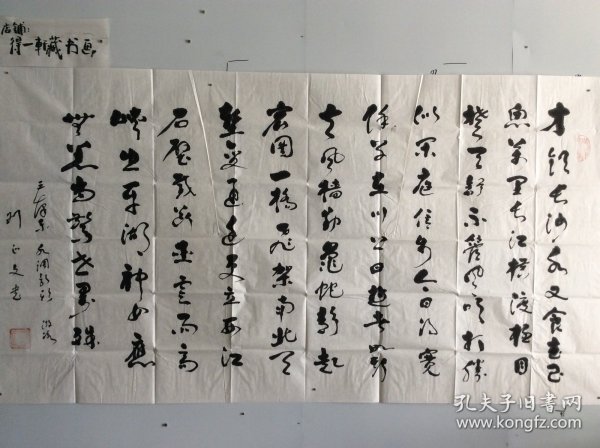 店铺:
得一轩藏书画
才饮长沙水又食武昌
鱼万里长江横渡极目
楚天舒不管风吹打胜
似闲庭信步今日得宽
馀子在川上曰逝者如斯
夫风樯动龟蛇静起
宏图一桥飞架南北天
堑变通途更立西江
石壁截断巫云雨高
峡出平湖神女应
无恙当惊世界殊
毛泽东水调歌头 游泳
孔夫子旧书网
www.kongfz.com